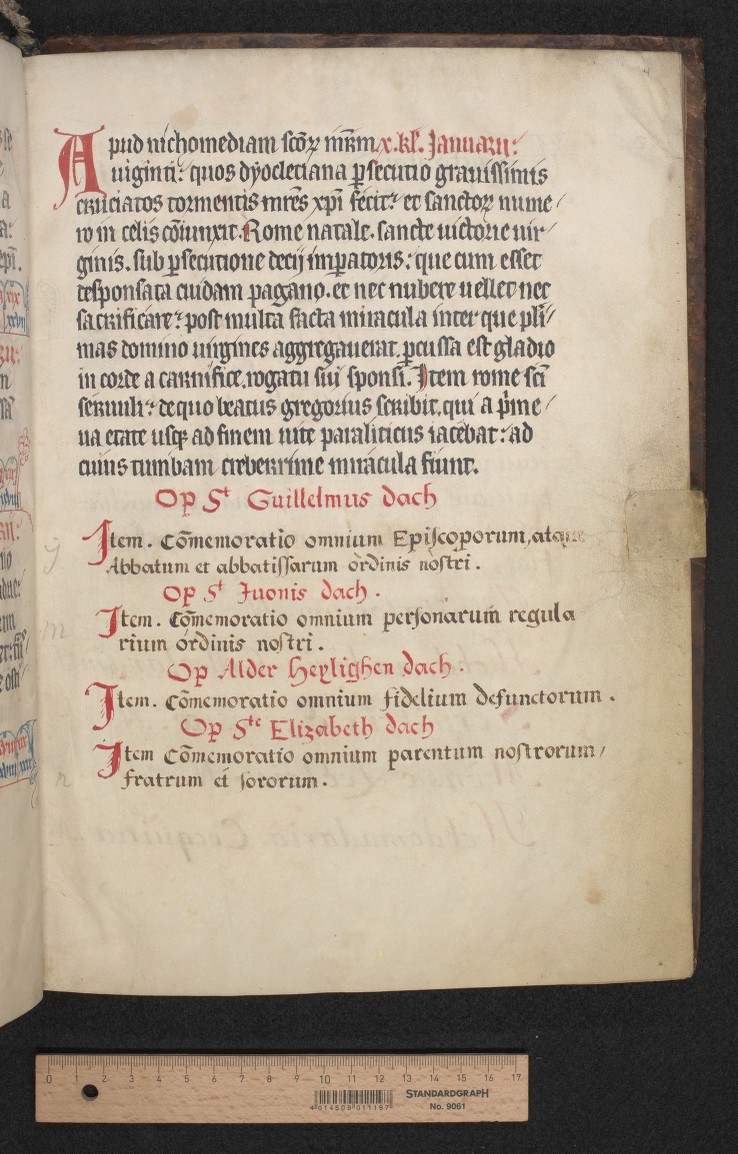 Apud nichomediam sc̄oꝝ mr̄m x. kl'. Januarij:
uiginti: quos dyocletiana ꝑsecutio grauissimis
cruciatos tormentis mr̄es xp̄i fecit: et sanctoꝝ nume/
ro in celis cōiunxit. Rome natale. sancte uictorie uir/
ginis. sub ꝑsecutione decij imꝑatoris: que cum esset
desponsata cuidam pagano. et nec nubere uellet nec
sacrificare: post multa facta miracula inter que pli/
mas domino uirgines aggregauerat. ꝑcussa est gladio
in corde a carnifice, rogatu sui sponsi. Item rome sc̄i
seruuli: de quo beatus gregorius scribit. qui a p̄me/
ua etate usqꝫ ad finem uite paraliticus iacebat: ad
cuius tumbam creberrime miracula fiunt.
Op St Guillelmus dach
Item. Cōmemoratio omnium Episcoporum, atque
Abbatum et abbatissarum ordinis nostri.
Op St Juonis dach.
Item. Cōmemoratio omnium personarum regula
rium ordinis nostri.
Op Alder Heylighen dach.
Item. Cōmemoratio omnium fidelium defunctorum.
Op Ste Elizabeth dach
Item Cōmemoratio omnium parentum nostrorum/
fratrum et sororum.
0 1 2 3 4 5 6 7 8 9 10 11 12 13 14 15 16 17
STANDARDGRAPH
No. 9061
4 014509 011197